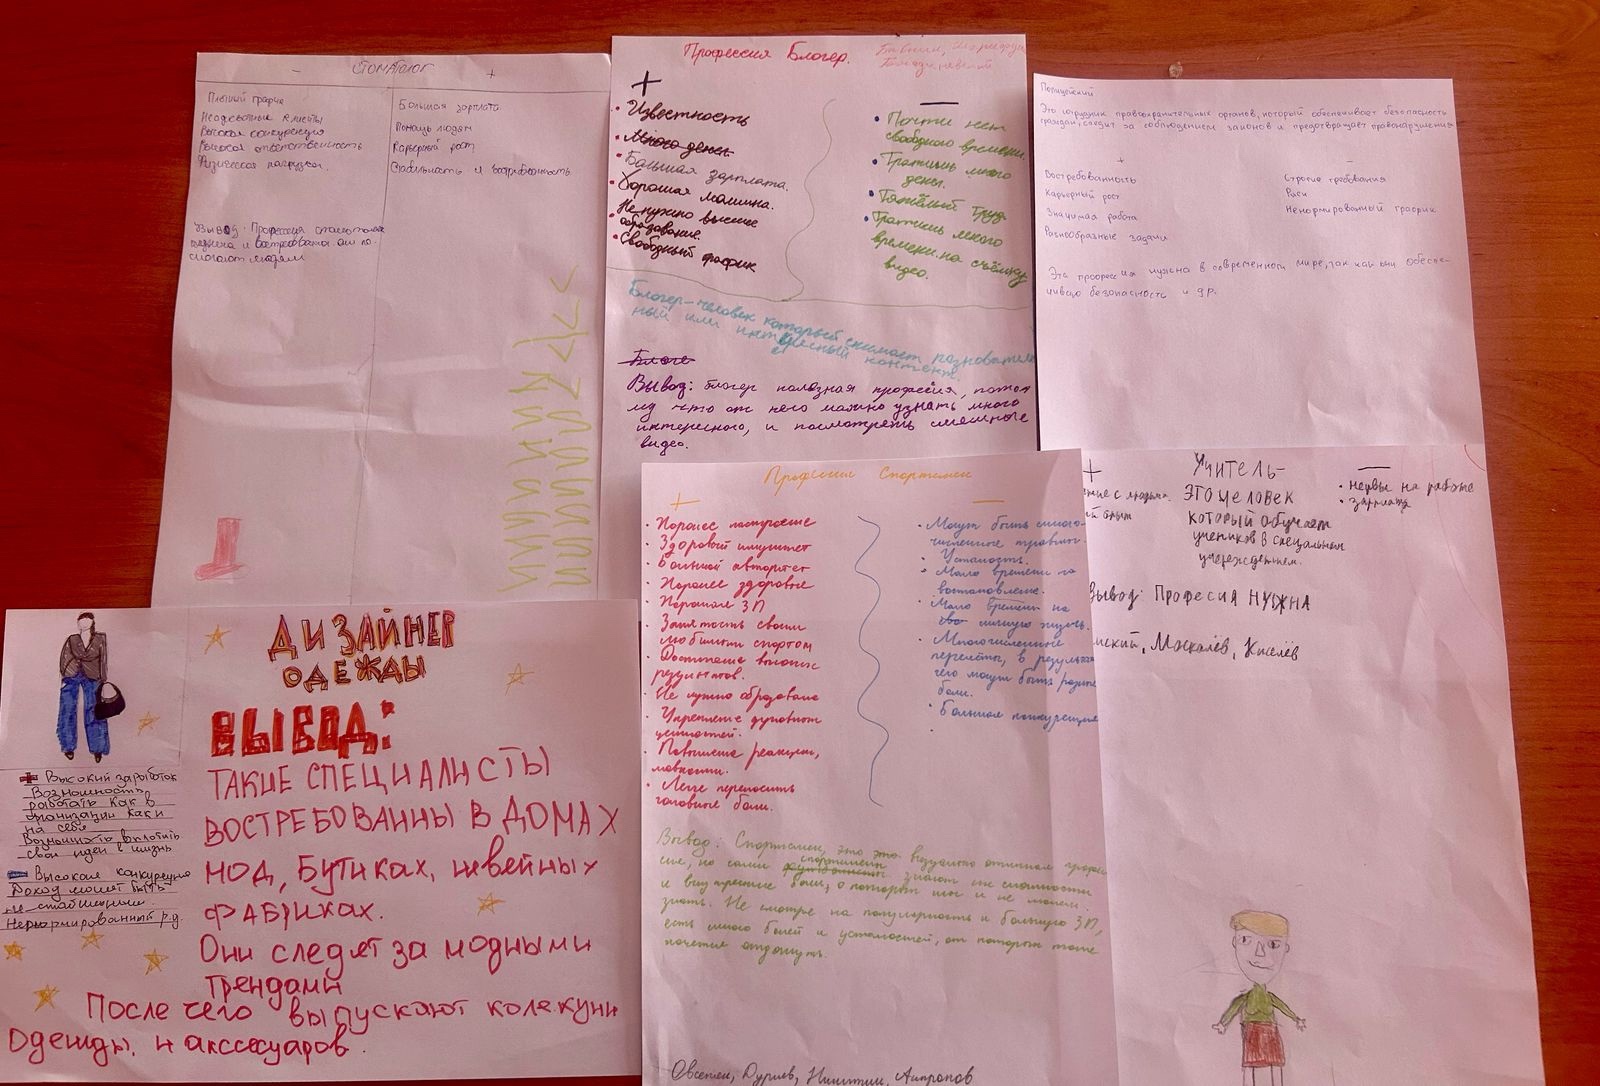 СТОМАТОЛОГ
- +
Плотный график
Неадекватные клиенты
Высокая конкуренция
Высокая ответственность
Физическая нагрузка.
Большая зарплата
Помощь людям
Карьерный рост
Стабильность и востребованность
Вывод: Профессия стоматолога
и востребована они по-
могают людям
Профессия Блогер.
+
• Известность
• Много денег
• Большая зарплата.
• Хорошая машина.
• Не нужно высшее
образование.
• Свободный график
—
• Почти нет
свободного времени.
• Тратишь много
денег.
• Тяжёлый труд
• Тратишь много
времени на съёмку
видео.
Блогер-человек который снимает
ный или интересный контент.
Блоге
Вывод: блогер полезная профессия, потом
му что от него можно узнать много
интересного, и посмотреть смешные
видео.
Полицейский
Это сотрудник правоохранительных органов, который обеспечивает безопасность
граждан, следит за соблюдением законов и предотвращает правонарушения
+
Востребованность
Карьерный рост
Значимая работа
Разнообразные задачи
—
Строгие требования
Риски
Ненормированный график
Эта профессия нужна в современном мире, так как они обеспе-
чиваю безопасность и др.
ДИЗАЙНЕР
ОДЕЖДЫ
ВЫВОД:
ТАКИЕ СПЕЦИАЛИСТЫ
ВОСТРЕБОВАННЫ В ДОМАХ
МОД, БУТИКАХ, швейных
ФАБРИКАХ.
Они следят за модными
трендами
После чего выпускают колекции
Одежды, и акссесуаров.
+ Высокий заработок
Возможность
работать как в
организации как и
на себя
Возможность воплотить
свои идеи в жизнь
- Высокая конкуренция
Доход может быть
не стабильным.
Ненормированный р.д.
Профессия Спортсмен
+
• Хорошее настроение
• Здоровый иммунитет
• Большой авторитет
• Хорошее здоровье
• Хорошая ЗП
• Занятость своим
любимым спортом
• Достижение высоких
результатов.
• Не нужно образование
• Укрепление духовных
ценностей.
• Повышение реакции,
ловкости.
• Легче переносить
головные боли.
—
• Могут быть много-
численные травмы.
• Усталость.
• Мало времени на
востановление.
• Мало времени на
сво личную жизнь.
• Многочисленные
перелёты, в результа
чего могут быть разные
боли.
• Большая конкуренция
Вывод: Спортсмен, это это визуально отличная профес
сия, но сами спортсмены знают их сложности
и внутренние боли, о которых мы и не можем
знать. Не смотря на популярность и большую ЗП,
есть много болей и усталостей, от которых тоже
хочется отдохнуть.
Овсепян, Дуриев, Никитин,
+
ние с людьми.
ый опыт
Учитель-
ЭТО ЧЕЛОВЕК
который обучает
учеников в специальном
учереждением.
—
• нервы на работе
• зарплата
Вывод: Професия НУЖНА
мский, Москалёв, Киселёв